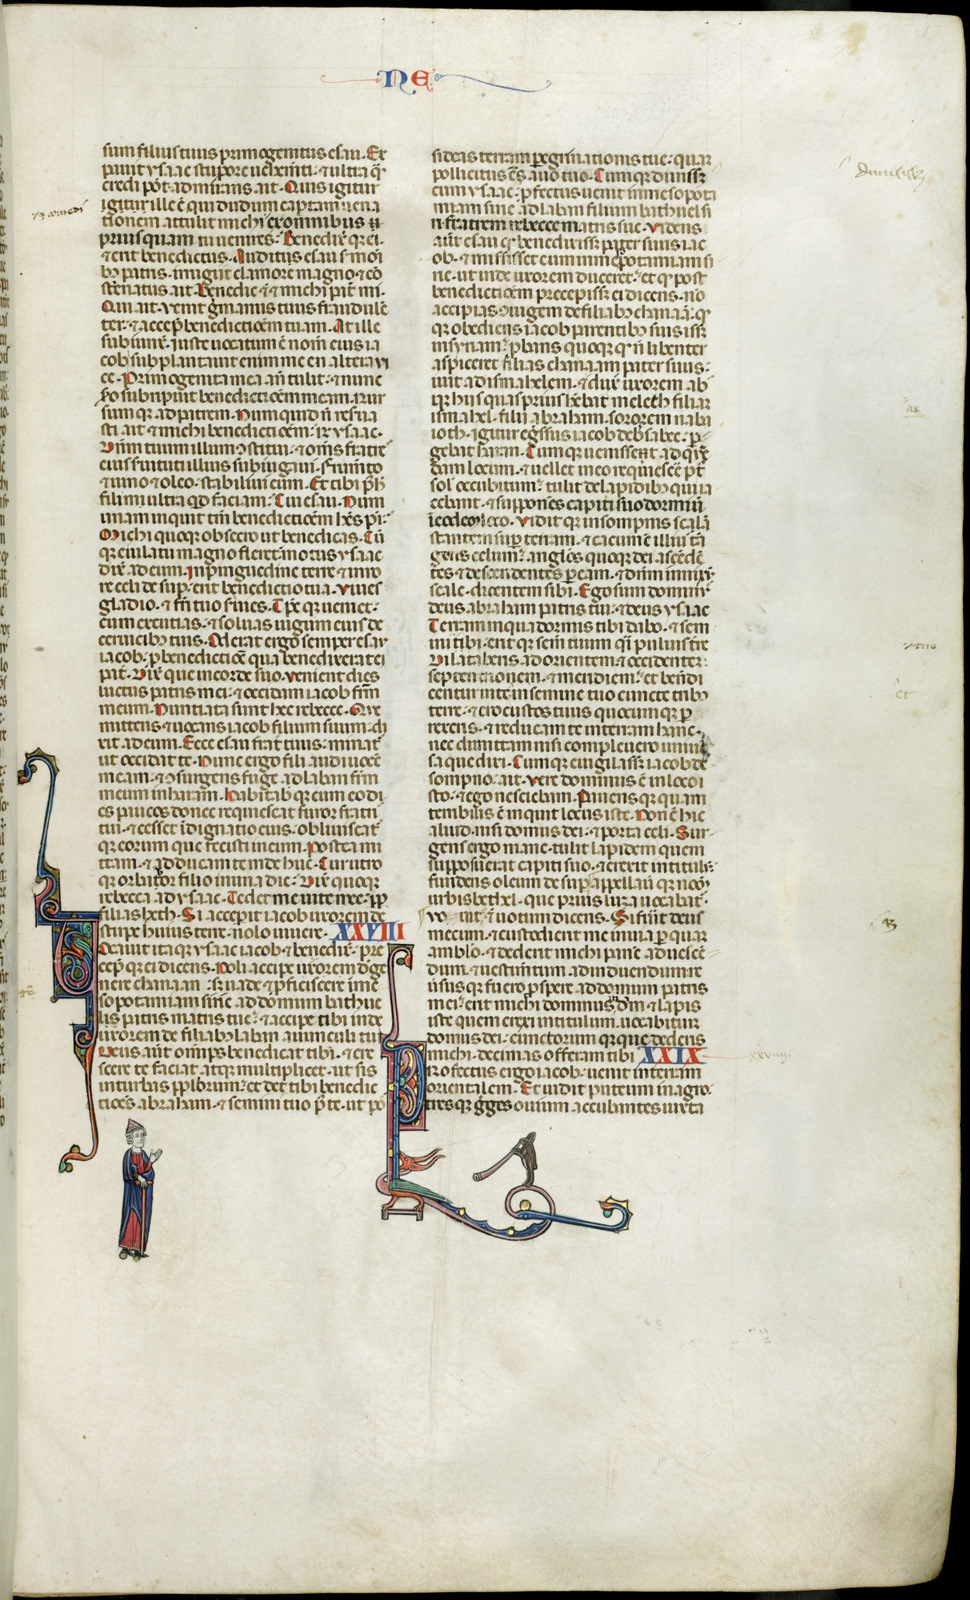 NE
sum filius tuus primogenitus esau. Ex
pauit ysaac stupore uehementi. & ultra qͣ
credi pōt admirans ait. Quis igitur
igitur ille ē qui dudum captam uena
tionem attulit michi & comedi
ex omnibus
prius quam tu uenires. Benedix̄ que ei.
& erit benedictus. Auditis esau smoni
bȝ patris. irrugiit clamore magno & cō
sternatus ait. Benedic & & michi pat̄ mi.
Qui ait. Venit gmanus tuus fraudulē
ter. & accep̄ benedictiōem tuam. At ille
subiunx̄. iuste uocatum ē nom̄ eius ia
cob. subplantauit enim me en altera ui
ce. Primogenita mea an̄ tulit. & nunc
ṽo subripuit benedictiōem meam. Rur
sum que ad patrem. Numquid n̄ reserua
sti ait & michi benedictiōem. ix̄ ysaac.
Dn̄m tuum illum ɔstitui. & om̄s fratres
eius seruituti illius subiugaui. frumto
& uino & oleo. stabiliui eum. Et tibi p̄ h̄
fili mi ultra qd faciam. Cui esau. Num
unam inquit tm̄ benedictiōem hēs pat̄.
Michi quoque obsecro ut benedicas. Cū
que eiulatu magno fleret. motus ysaac
dix̄ ad eum. In pinguedine terre & in ro
re celi de sup. erit benedictio tua. Viues
gladio. & fr̄i tuo suies. Tp̄s que ueniet.
cum excutias. & soluas iugum eius de
ceruicibȝ tuis. Oderat ergo semper esau
iacob. p benedictiōe qua benedixerat ei
pat̄. Dix̄ que in corde suo. Venient dies
luctus patris mei. & occidam iacob frm̄
meum. Nuntiata sunt hec rebecce. Que
mittens & uocans iacob filium suum. di
xit ad eum. Ecce esau frat̄ tuus. minat̄
ut occidat te. Nunc ergo fili audi uocē
meam. & ɔsurgens fuge ad laban frm̄
meum in haram. habitab que cum eo di
es paucos donec requiescat furor fratris
tui. & cesset īdignatio eius. obliuiscat̄
que eorum que fecisti in eum. Postea mi
ttam. & adducam te inde huc. Cur utro
que orbabor filio in una die. Dix̄ quoque
rebecca ad ysaac. Tedet me uite mee. pp̄
filias heth. Si acceperit iacob uxorem de
stirpe huius terre. nolo uiuere. XXVIII
Vocauit itaque ysaac iacob & benedix̄. pre
cep̄ que ei dicens. Noli accipe uxorem d gē
nere chanaan. sȝ uade & pficiscere ī me
sopotamiam sirie ad domum bathue
lis patris matris tue. & accipe tibi inde
uxorem de filiabȝ laban auunculi tui.
Deus aut̄ omps benedicat tibi. & cre
scere te faciat atque multiplicet. ut sis
in turbas pplorum. et det tibi benedic
tiōes abraham. & semini tuo p̄ te. ut pos
sideas terram pegrinationis tue. quam
pollicitus ē ds auo tuo. Cumque dimisiss
eum ysaac. pfectus uenit in mesopota
miam sirie ad laban filium bathuel si
ri fratrem rebecce matris sue. Videns
aut̄ esau qȝ benedixiss pater suus iac
ob. & misisset eum in mesopotamiam si
rie. ut inde uxorem duceret. et qȝ post
benedictiōem precepiss ei dicens. nō
accipias ɔiugem de filiabȝ chanaan. qȝ
que obediens iacob parentibȝ suis iss
in syriam. pbans quoque qȝ n̄ libenter
aspiceret filias chanaam pater suus.
iuit ad ismahelem. & dux̄ uxorem ab
sque hiis quas prius hebat meleth filiam
ismahel. filii abraham. sororem naba
ioth. igitur egssus iacob de bsabee. p
gebat haran. Cumque uenisset ad quen
dam locum. & uellet in eo requiescere pt̄
sol occubitum. tulit de lapidibȝ qui ia
cebant. & supponēs capiti suo dormiuit
ī eodem loco. Vidit que in sompnis scalā
stantem sup terram. & cacumē illius tā
gens celum. anglos quoque dei ascēdē
tes & descendentes p eam. & dnm innixū
scale. dicentem sibi. Ego sum dominus
deus abraham patris tui. & deus ysaac
Terram in qua dormis tibi dabo. & sem
ini tibi. erit que semen tuum qi puluis tre
Dilataberis ad orientem & occidentem.
septentrionem. & meridiem. et bndi
centur in te in semine tuo cuncte tribȝ
terre. & ero custos tuus quocumque p
rexeris. & reducam te in terram hanc.
nec dimittam nisi compleuero uniuer
sa que dixi. Cumque euigilass iacob de
sompno. ait. Vere dominus ē in loco i
sto. & ego nesciebam. Pauens que quam
terribilis ē inquit locus iste. Non ē hic
aliud. nisi domus dei. & porta celi. Sur
gens ergo mane. tulit lapidem quem
supposuerat capiti suo. & erexit in titulum.
fundens oleum de sup. appellauit que nom̄
urbis bethel. que prius luza uocabat̄.
Vouit n̄ uotum dicens. Si fuit deus
mecum. & custodierit me in uia p quam
ambulo. & dederit michi panē ad uescē
dum. & uestimtum ad induendum. re
uersus que fuero prospere ad domum patris
mei. erit michi dominus in dm̄ & lapis
iste quem erexi in titulum. uocabitur
domus dei. cunctorum que que dederis
michi. decimas offeram tibi. XXIX
Profectus ergo iacob. uenit in terram
orientalem. Et uidit puteum in agro.
tres que gges ouium accubantes iuxta
xxviiii